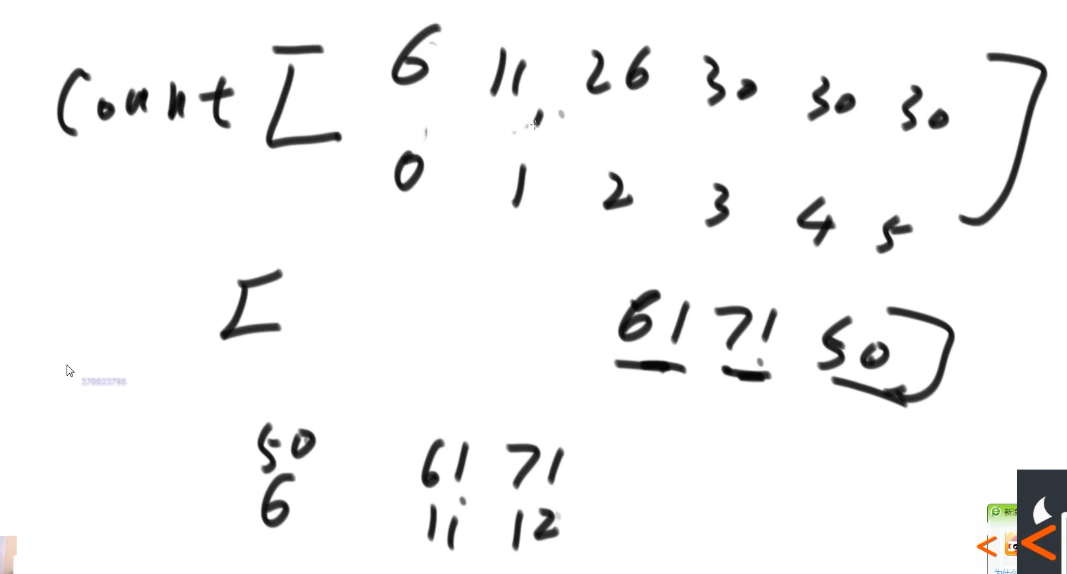 Count [ 6 11 26 30 30 30 ]
0 1 2 3 4 5
[ 61 71 50 ]
50 61 71
6 11 12